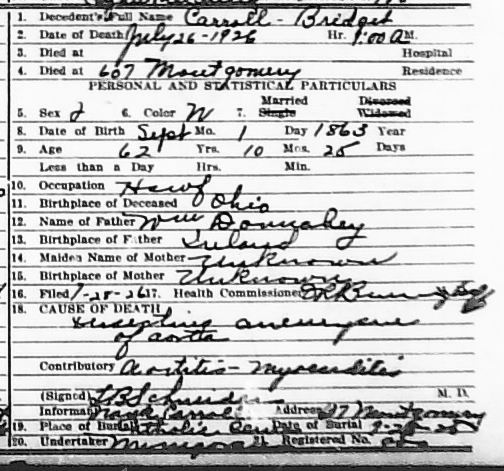 1. Decedent's Full Name Carroll - Bridget
2. Date of Death July 26 - 1926 Hr. 9:00 A M.
3. Died at Hospital
4. Died at 607 Montgomery Residence
PERSONAL AND STATISTICAL PARTICULARS
Married Divorced
5. Sex f 6. Color W 7. Single Widowed
8. Date of Birth Sept Mo. 1 Day 1863 Year
9. Age 62 Yrs. 10 Mos. 25 Days
Less than a Day Hrs. Min.
10. Occupation Hswf
11. Birthplace of Deceased Ohio
12. Name of Father Wm Donnahey
13. Birthplace of Father Ireland
14. Maiden Name of Mother Unknown
15. Birthplace of Mother Unknown
16. Filed 7-28-26 17. Health Commissioner
18. CAUSE OF DEATH
aneurysm
of aorta
Contributory Aortitis - Myocarditis
(Signed) M. D.
Informant Carroll Address Montgomery
19. Place of Burial Date of Burial
20. Undertaker 21. Registered No.